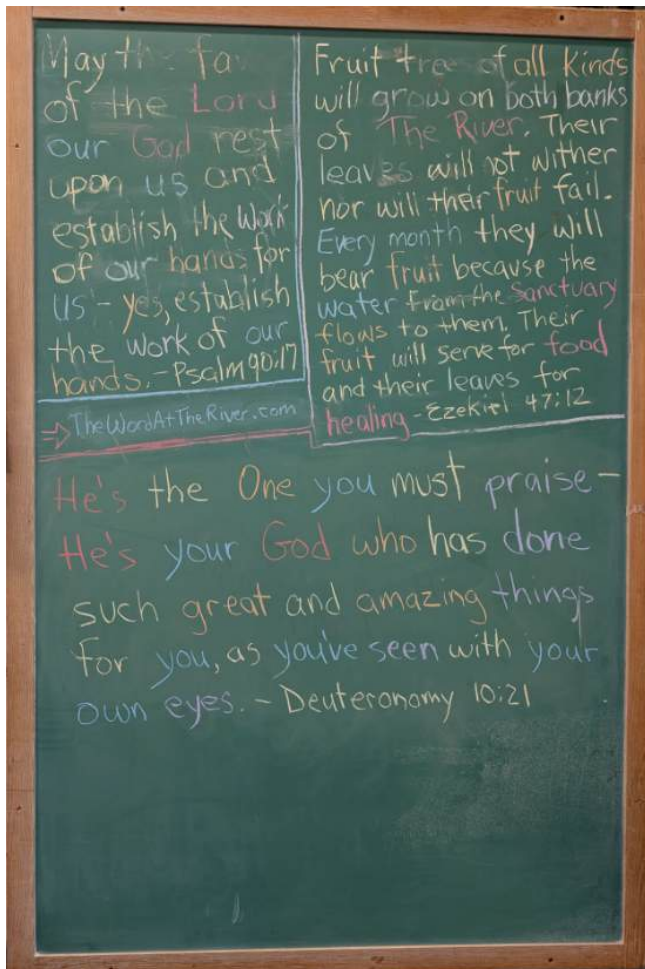 May the fa
of the Lord
our God rest
upon us and
establish the work
of our hands for
us - yes, establish
the work of our
hands. - Psalm 90:17
→ TheWordAtTheRiver.com
Fruit tree of all kinds
will grow on both banks
of The River. Their
leaves will not wither
nor will their fruit fail.
Every month they will
bear fruit because the
water From the sanctuary
flows to them. Their
fruit will serve for food
and their leaves for
healing - Ezekiel 47:12
He's the One you must praise -
He's your God who has done
such great and amazing things
for you, as you've seen with your
own eyes. - Deuteronomy 10:21